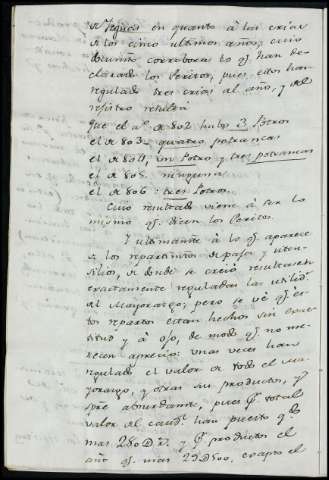 de Yeguas en quanto à las crias
de los cinco ultimos años, cuio
corrobora lo q.e han de-
clarado los Peritos, pues estos han
regulado tres crias al año, y del
registro resulta
Que el a.o de 802 hubo 3 Potros
el de 803. quatro potrancas
el de 804, un Potro, y tres potrancas
el de 805. ninguna
el de 806. tres Potros.
Cuio resultado viene à ser lo
mismo q.e dicen los Peritos.
Y ultimam.te à lo q.e aparece
de los repartim.tos de paja y uten-
silios, de donde se creió resultasen
exactamente reguladas las utilid.s
del Mayorazgo; pero se vé q.e es-
tos repartos estan hechos sin exac-
titud y à ojo, de modo q.e no me-
recen aprecio: unas veces han
regulado el valor de todo el Ma-
yorazgo, y otras sus productos, y
spre abundante, pues p.r total
valor del caud.l han puesto q.do
mas 280 D r.s y p.r productos el
año q.e mas 29 D 500, excepto el